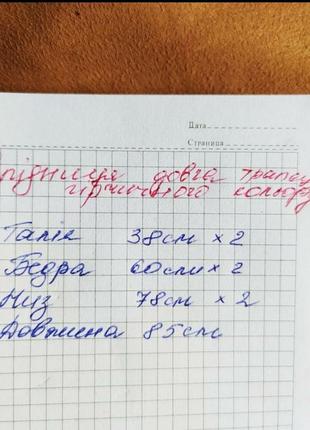 Дата
Страница
спідниця довга трапец
гірчичного кольору
Талія 38см × 2
Бедра 60см × 2
Низ 78см × 2
Довжина 85см